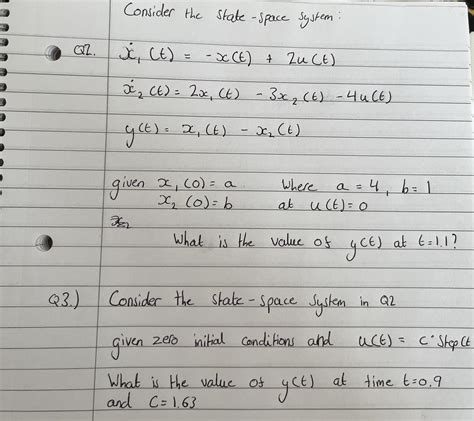 Consider the state-space system:
Q2. ẋ₁(t) = -x(t) + 2u(t)
ẋ₂(t) = 2x₁(t) - 3x₂(t) - 4u(t)
y(t) = x₁(t) - x₂(t)
given x₁(0) = a where a = 4, b = 1
x₂(0) = b at u(t) = 0
What is the value of y(t) at t=1.1?
Q3.) Consider the state-space system in Q2
given zero initial conditions and u(t) = C·Step(t
What is the value of y(t) at time t=0.9
and C=1.63